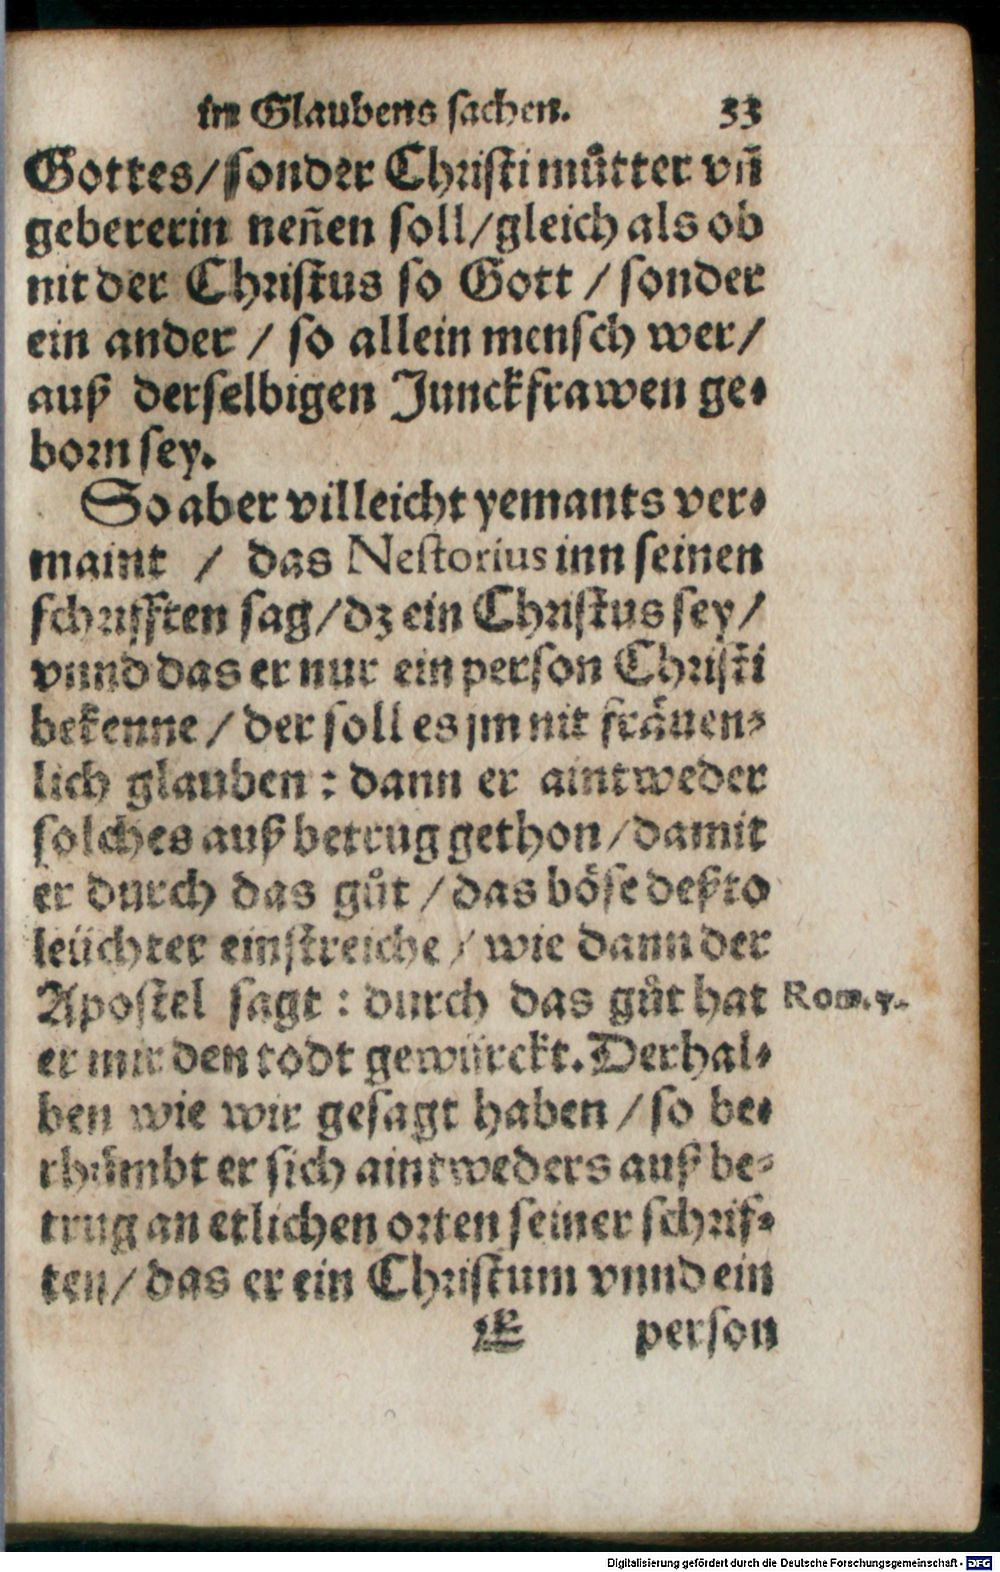 im Glaubens sachen. 33
Gottes/ sonder Christi můtter vñ
gebererin neñen soll/ gleich als ob
nit der Christus so Gott / sonder
ein ander / so allein mensch wer/
auß derselbigen Junckfrawen ge-
born sey.
So aber villeicht yemants ver-
maint / das Nestorius inn seinen
schrifften sag/ dz ein Christus sey/
vnnd das er nur ein person Christi
bekenne / der soll es jm nit fräuen-
lich glauben : dann er aintweder
solches auß betrug gethon / damit
er durch das gůt / das böse deßto
leüchter einstreiche / wie dann der
Apostel sagt : durch das gůt hat
Rom. 7.
er mir den todt gewürckt. Derhal-
ben wie wir gesagt haben / so be-
rhůmbt er sich aintweders auß be-
trug an etlichen orten seiner schrif-
ten/ das er ein Christum vnnd ein
person
Digitalisierung gefördert durch die Deutsche Forschungsgemeinschaft - DFG